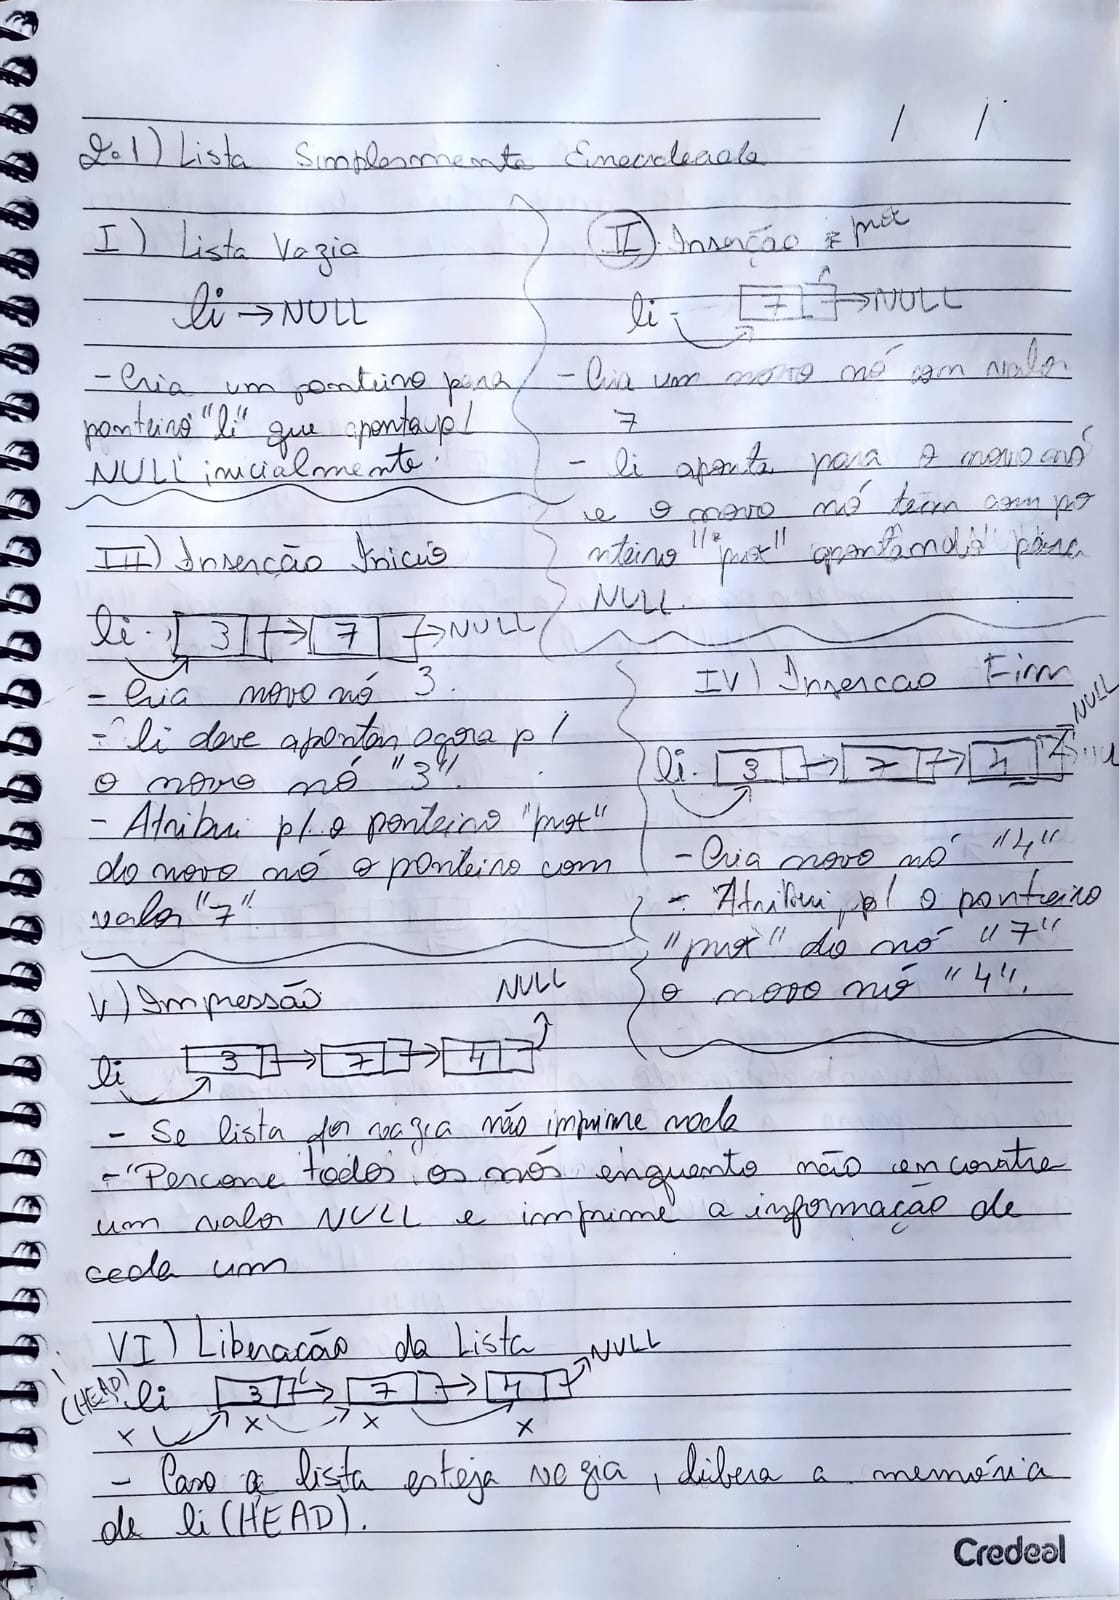 / /
2.1) Lista Simplesmente Encadeada
I) Lista Vazia
li → NULL
- Cria um ponteiro para
ponteiro "li" que aponta p/
NULL inicialmente.
II) Inserção
prox
li 7 → NULL
- Cria um novo nó com valor
7
- li aponta para o novo nó
e o novo nó tem com po
nteiro "prox" apontando para
NULL.
III) Inserção Início
li 3 → 7 → NULL
- Cria novo nó 3.
- li deve apontar agora p/
o novo nó "3".
- Atribui p/ o ponteiro "prox"
do novo nó o ponteiro com
valor "7".
IV) Insercao Fim
NULL
li 3 → 7 → 4
- Cria novo nó "4"
- Atribui p/ o ponteiro
"prox" do nó "7"
o novo nó "4".
V) Impressão
NULL
li 3 → 7 → 4
- Se lista for vazia não imprime nada
- Percorre todos os nós enquanto não encontre
um valor NULL e imprime a informação de
cada um
VI) Liberação da Lista
(HEAD) li 3 → 7 → 4 NULL
x x x x
- Caso a lista esteja vazia, libera a memória
de li (HEAD).
Credeal